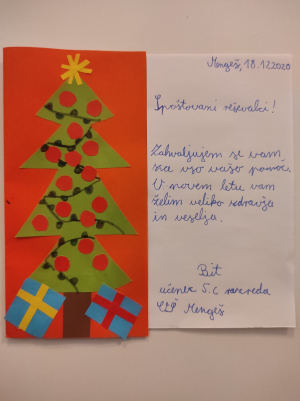 Mengeš, 18.12.2020
Spoštovani reševalci!
Zahvaljujem se vam
za vso vašo pomoč.
V novem letu vam
želim veliko zdravja
in veselja.
Bit
učenec 5.c razreda
OŠ Mengeš